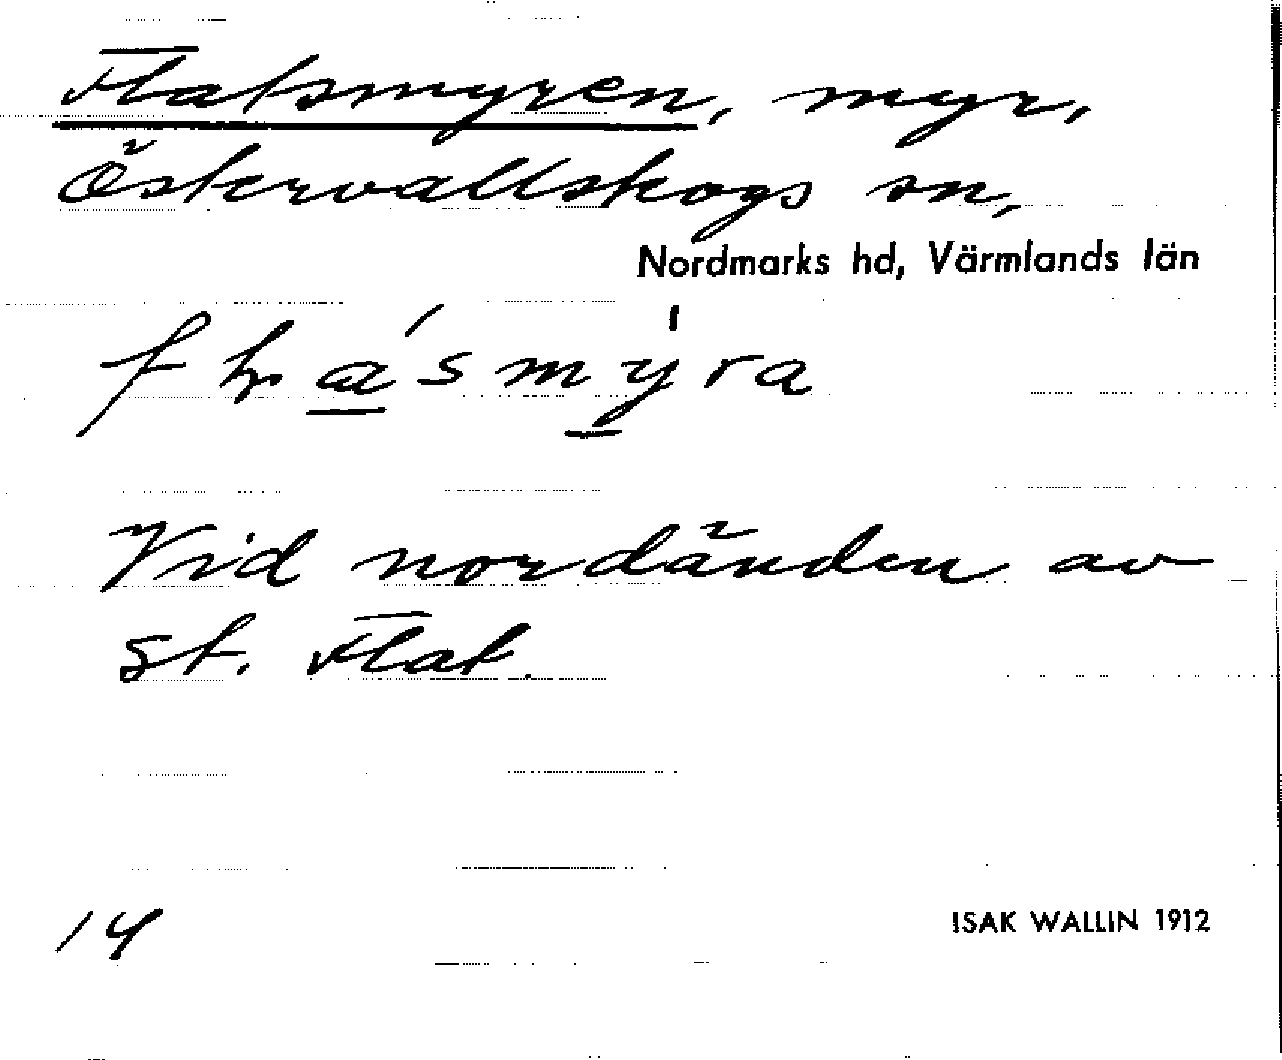 Flatsmyren, myr,
Östervallskogs sn,
Nordmarks hd, Värmlands län
Vid nordänden av
St. Flat.
14
ISAK WALLIN 1912